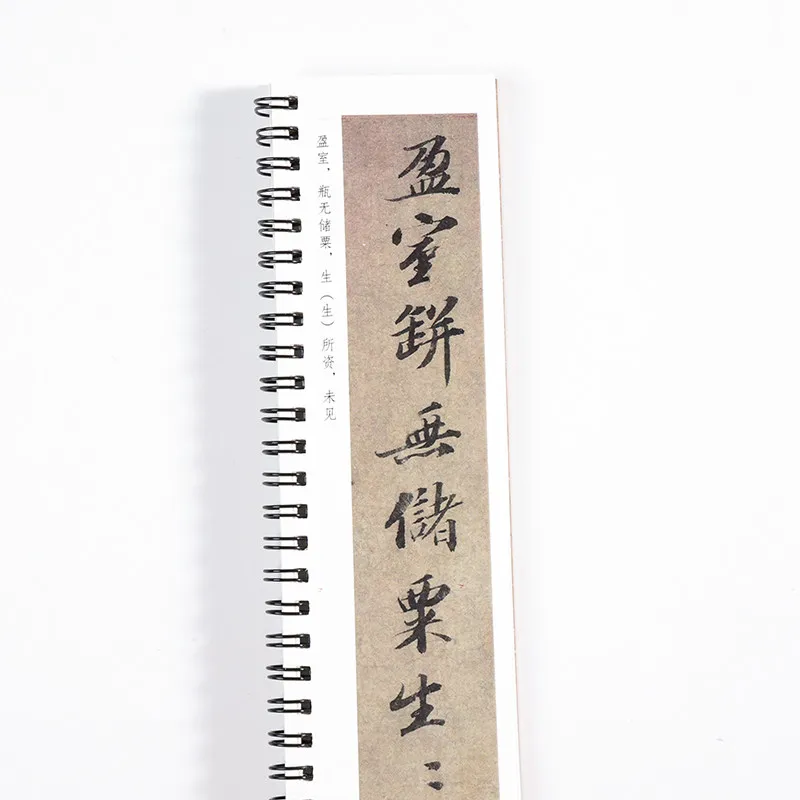 盈室缾無儲粟生〻
盈室，瓶无储粟，生（生）所资，未见